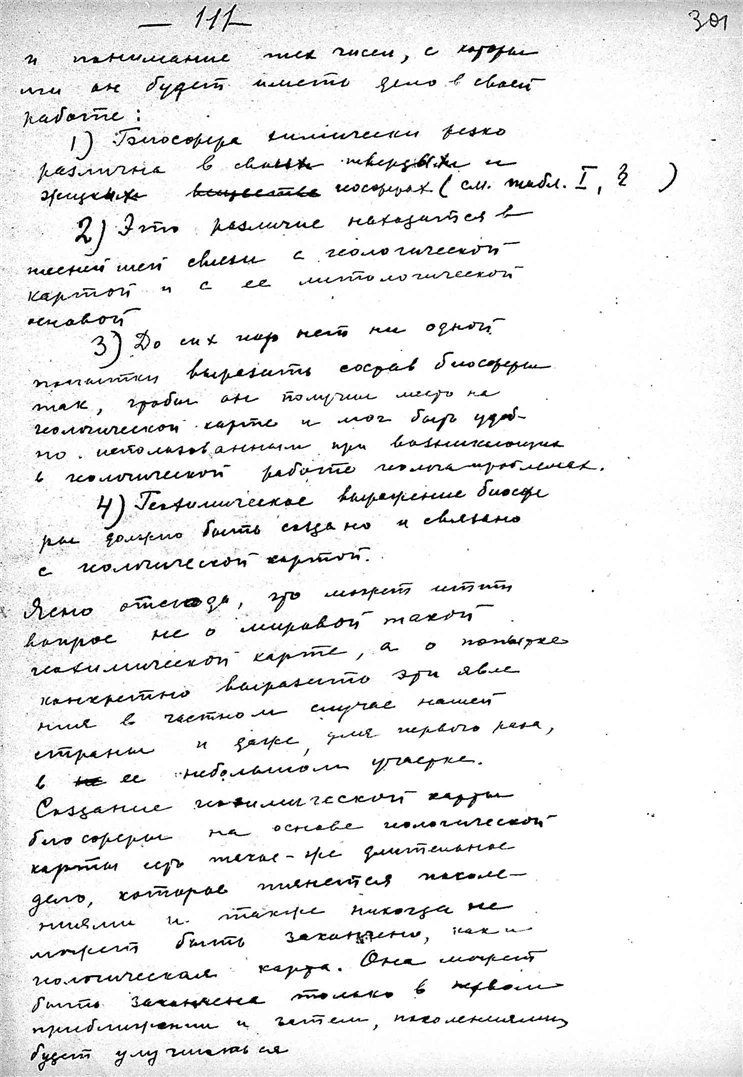 — 111 —
301
и понимание тех чисел, с которы
ми он будет иметь дело в своей
работе:
1) Биосфера химически резко
различна в своих твердых и
жидких геосферах (см. табл. I, 2 )
2) Это различие находится в
теснейшей связи с геологической
картой и с ее литологической
основой
3) До сих пор нет ни одной
попытки выразить состав биосферы
так, чтобы он получил место на
геологической карте и мог быть удоб-
но использованным при возникающих
в геологической работе геолога проблемах.
4) Геохимическое выражение биосфе
ры должно быть создано и связано
с геологической картой.
Ясно отсюда, что может итти
вопрос не о мировой такой
геохимической карте, а о попытке
конкретно выразить эти явле
ния в частном случае нашей
страны и даже, для первого раза,
в ее небольшом участке.
Создание геохимической карты
биосферы на основе геологической
карты есть такое-же длительное
дело, которое тянется поколе-
ниями и также никогда не
может быть закончено, как и
геологическая карта. Она может
быть закончена только в первом
приближении и затем, поколениями
будет улучшаться